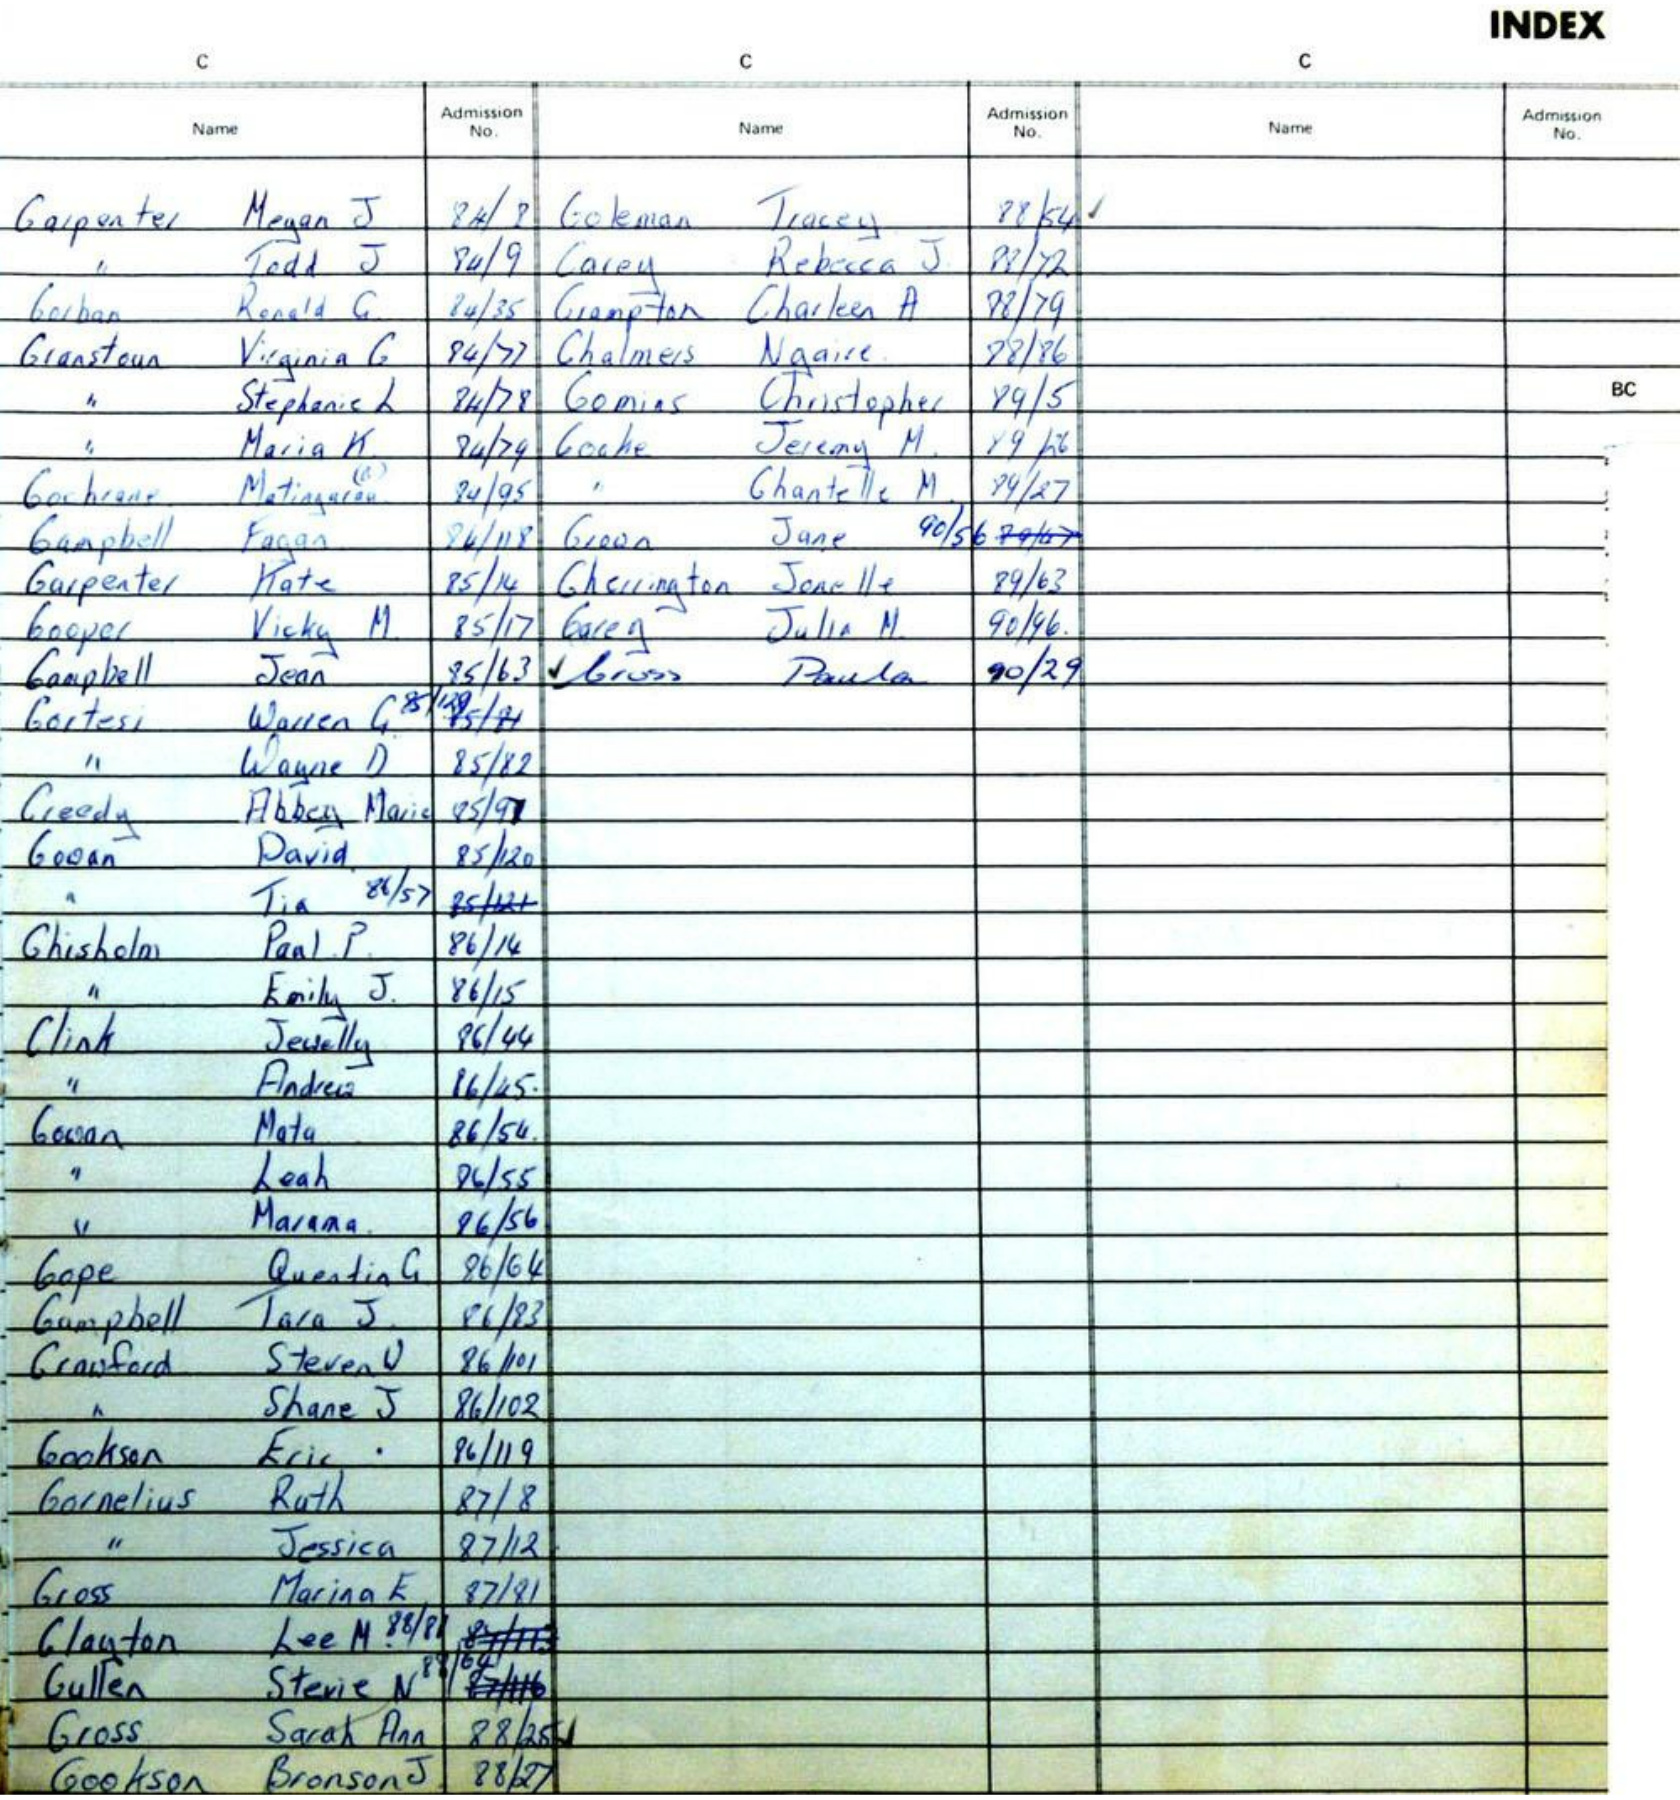 INDEX
C C C
Name Admission No. Name Admission No. Name Admission No.
Carpenter Megan J 84/8 Coleman Tracey 88/54 ✓
" Todd J 84/9 Carey Rebecca J. 88/72
Corban Ronald G. 84/35 Crampton Charleen A 88/79
Cranstoun Virginia C 84/77 Chalmers Ngaire. 88/86
" Stephanie L 84/78 Comins Christopher 89/5
BC
" Maria K. 84/79 Cooke Jeremy M. 89/26
Cochrane 84/95 " Chantelle M. 89/27
Campbell Fagan 84/118 Jane 90/56
Carpenter Kate 85/14 Cherrington Jonelle 89/63
Cooper Vicky M. 85/17 Carey Julia M. 90/46.
Campbell Jean 85/63 ✓ Cross Paula 90/29
Cortesi Warren G. 85/129 85/81
" Wayne D 85/82
Creedy Abbey Marie 85/97
Cowan David 85/120
" Tia 86/57 85/121
Chisholm Paul P. 86/14
" Emily J. 86/15
Clink Jewelly 86/44
" Andrew 86/45.
Cowan Mata 86/54.
" Leah 86/55
" Marama. 86/56
Cope Quentin G 86/64
Campbell Tara J. 86/83
Crawford Steven W 86/101
" Shane J 86/102
Cookson Eric . 86/119
Cornelius Ruth 87/8
" Jessica 87/12
Cross Marina E 87/81
Clayton Lee M. 88/81
Cullen Stevie N 88/64 87/116
Cross Sarah Ann 88/25 ✓
Cookson Bronson J. 88/27